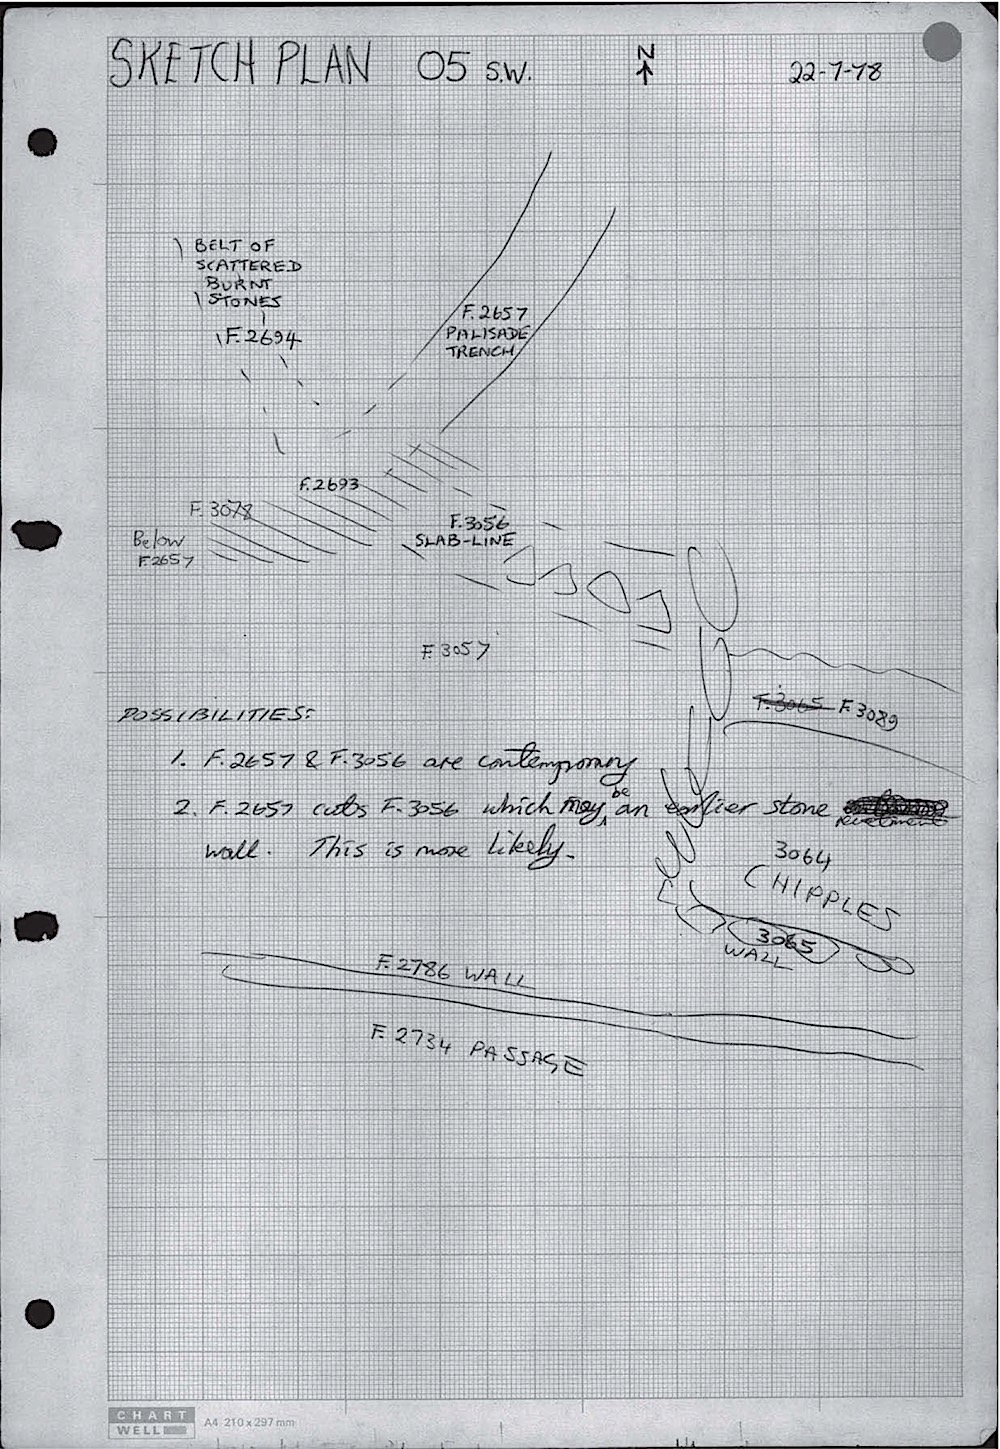 SKETCH PLAN 05 S.W. N 22-7-78
BELT OF
SCATTERED
BURNT
STONES
F.2694
F.2657
PALISADE
TRENCH
F.2693
F.3078
Below
F.2657
F.3056
SLAB-LINE
F.3057
F.3065 F.3089
POSSIBILITIES:
1. F.2657 & F.3056 are contemporary
2. F.2657 cuts F.3056 which may be an earlier stone revetment
wall. This is more likely.
3064
CHIPPLES
3065
WALL
F.2786 WALL
F.2734 PASSAGE
CHART
WELL
A4 210 x 297 mm